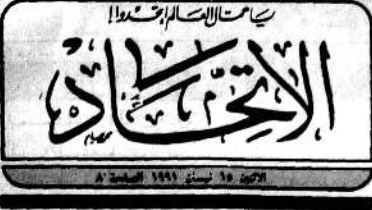 يا عمال العالم اتحدوا!
الاتحاد
الاثنين ١٥ نيسان ١٩٩١ الصفحة ٨